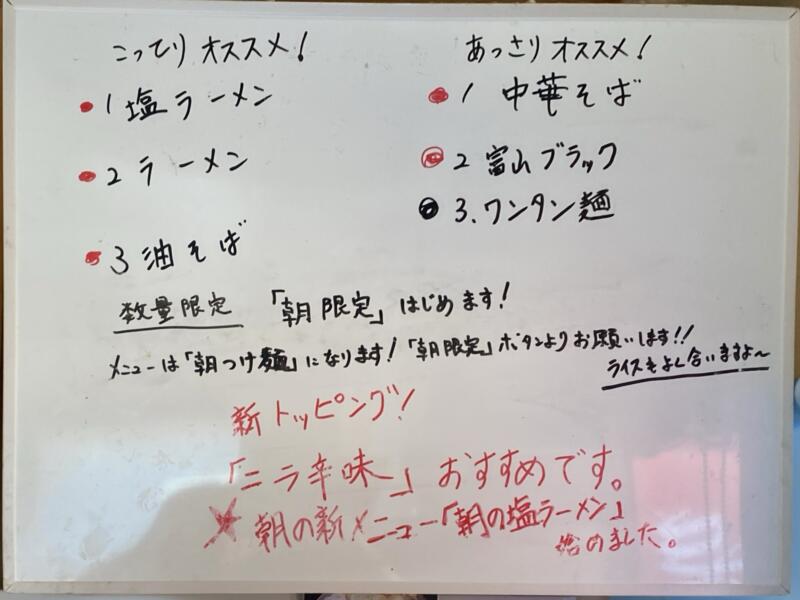 こってりオススメ!
1 塩ラーメン
2 ラーメン
3 油そば
あっさりオススメ!
1 中華そば
2 富山ブラック
3. ワンタン麺
数量限定 「朝限定」はじめます!
メニューは「朝つけ麺」になります!「朝限定」ボタンよりお願いします!!
ライスもよく合いますよ〜
新トッピング!
「ニラ辛味」おすすめです。
★朝の新メニュー「朝の塩ラーメン」
始めました。